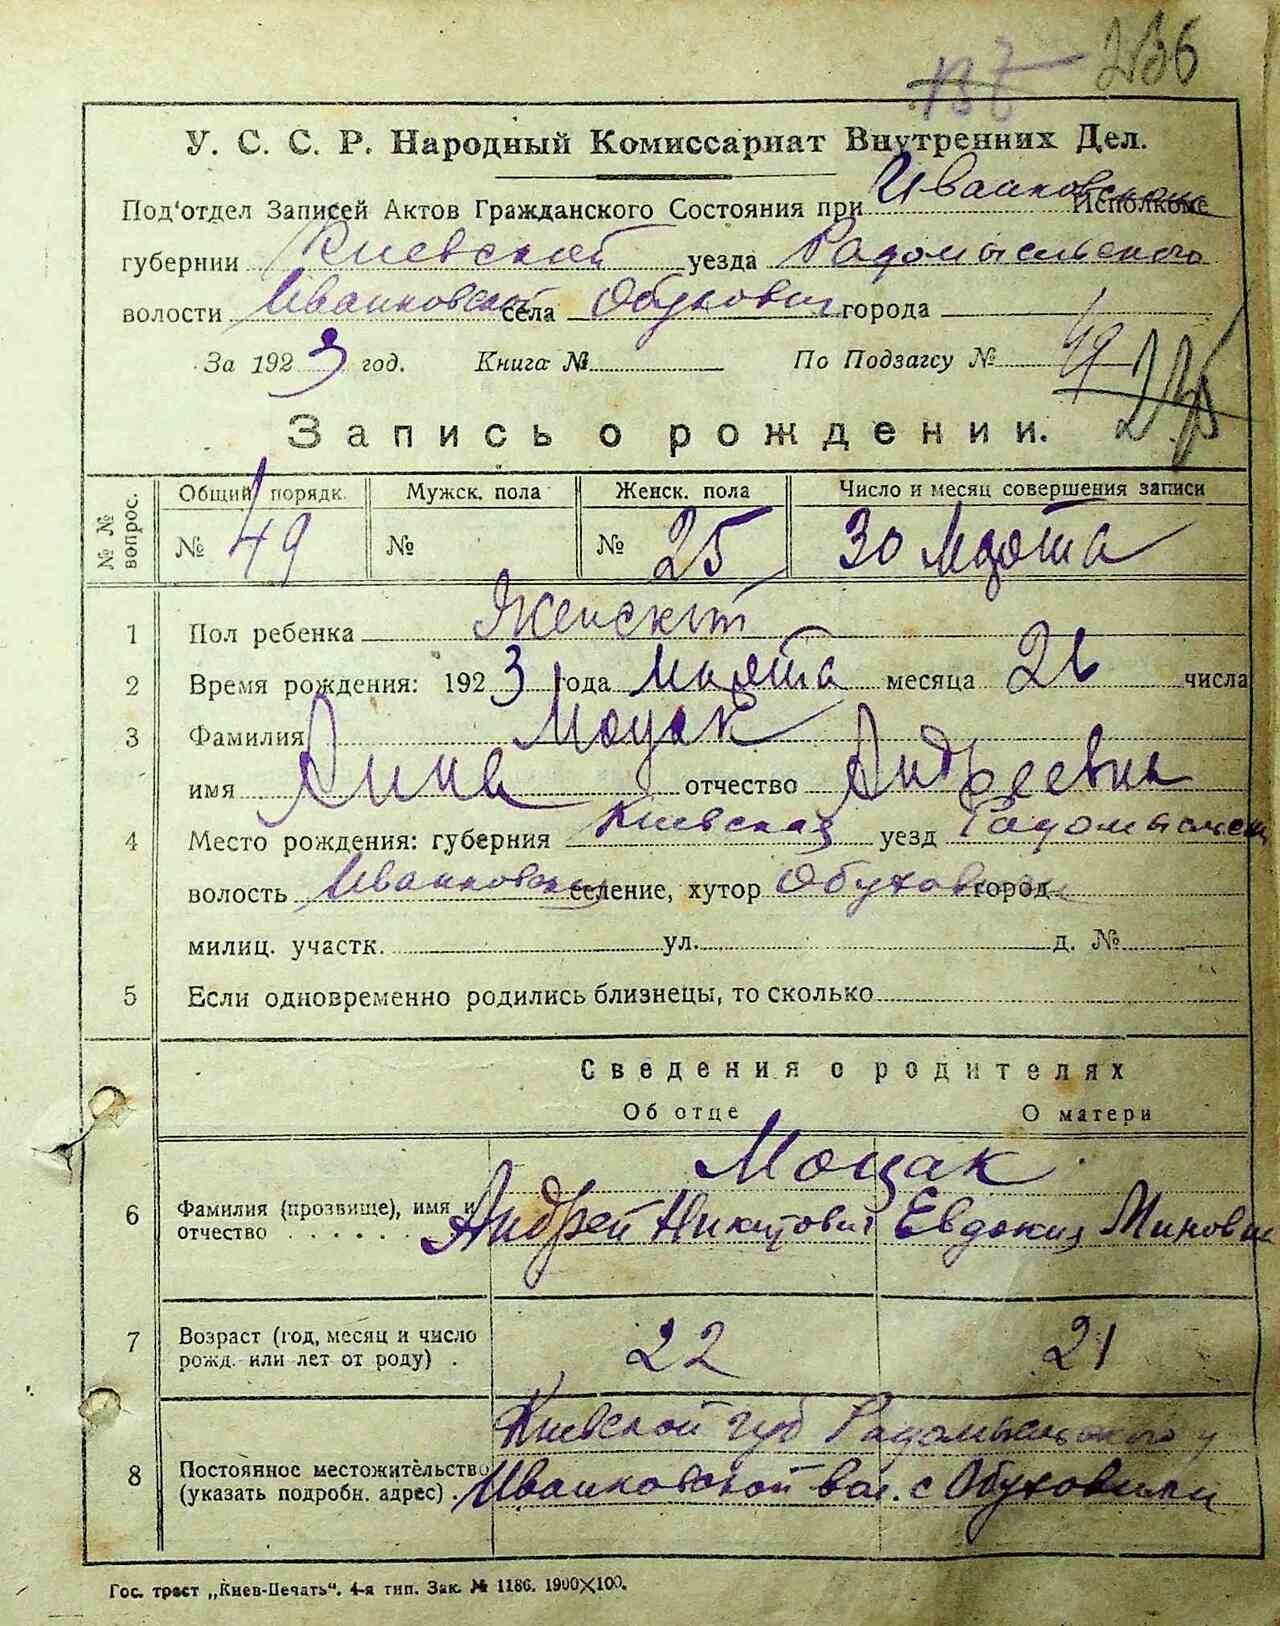 236
У. С. С. Р. Народный Комиссариат Внутренних Дел.
Под'отдел Записей Актов Гражданского Состояния при Иванковском Исполкоме
губернии Киевской уезда Радомысльского
волости Иванковской села Обуховичи города
За 1923 год. Книга № По Подзагсу № 49
Запись о рождении.
№ № вопрос. Общий порядк. Мужск. пола Женск. пола Число и месяц совершения записи
№ 49 № № 25 30 Марта
1 Пол ребенка Женский
2 Время рождения: 1923 года Марта месяца числа
3 Фамилия Моцак
имя Анна отчество Андреевна
4 Место рождения: губерния Киевская уезд Радомысльск
волость Иванковская селение, хутор Обуховичи город
милиц. участк. ул. д. №
5 Если одновременно родились близнецы, то сколько
Сведения о родителях
Об отце О матери
Моцак
6 Фамилия (прозвище), имя и отчество . . . . . . Андрей Никитович Евдокия Миновна
7 Возраст (год, месяц и число рожд. или лет от роду) . 22 21
Киевской губ Радомысльского у
8 Постоянное местожительство (указать подробн. адрес) . Иванковской вол. с Обуховичи
Гос. трест „Киев-Печать". 4-я тип. Зак. № 1186. 1900×100.